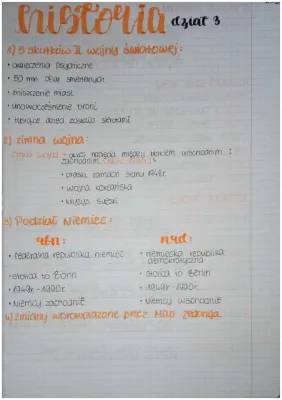 historia dział 3
1) 5 skutków II wojny światowej:
• cierpienia psychiczne
• 50 mln ofiar śmiertelnych
• zniszczenie miast
• unowocześnienie broni
• tysiące dzieci zostało sierotami
2) zimna wojna:
zimna wojna - okres napięcia między blokiem wschodnim i
zachodnim
• praski zamach stanu 1948r.
• wojna koreańska
• kryzys sueski
3) Podział Niemiec:
rfn: nrd:
• federalna republika niemiec • niemiecka republika
demokratyczna
• stolica to Bonn • stolica to Berlin
• 1949r - 1990r. • 1949r - 1990r.
• Niemcy zachodnie • Niemcy wschodnie
4) zmiany wprowadzone przez Mao Zedonga